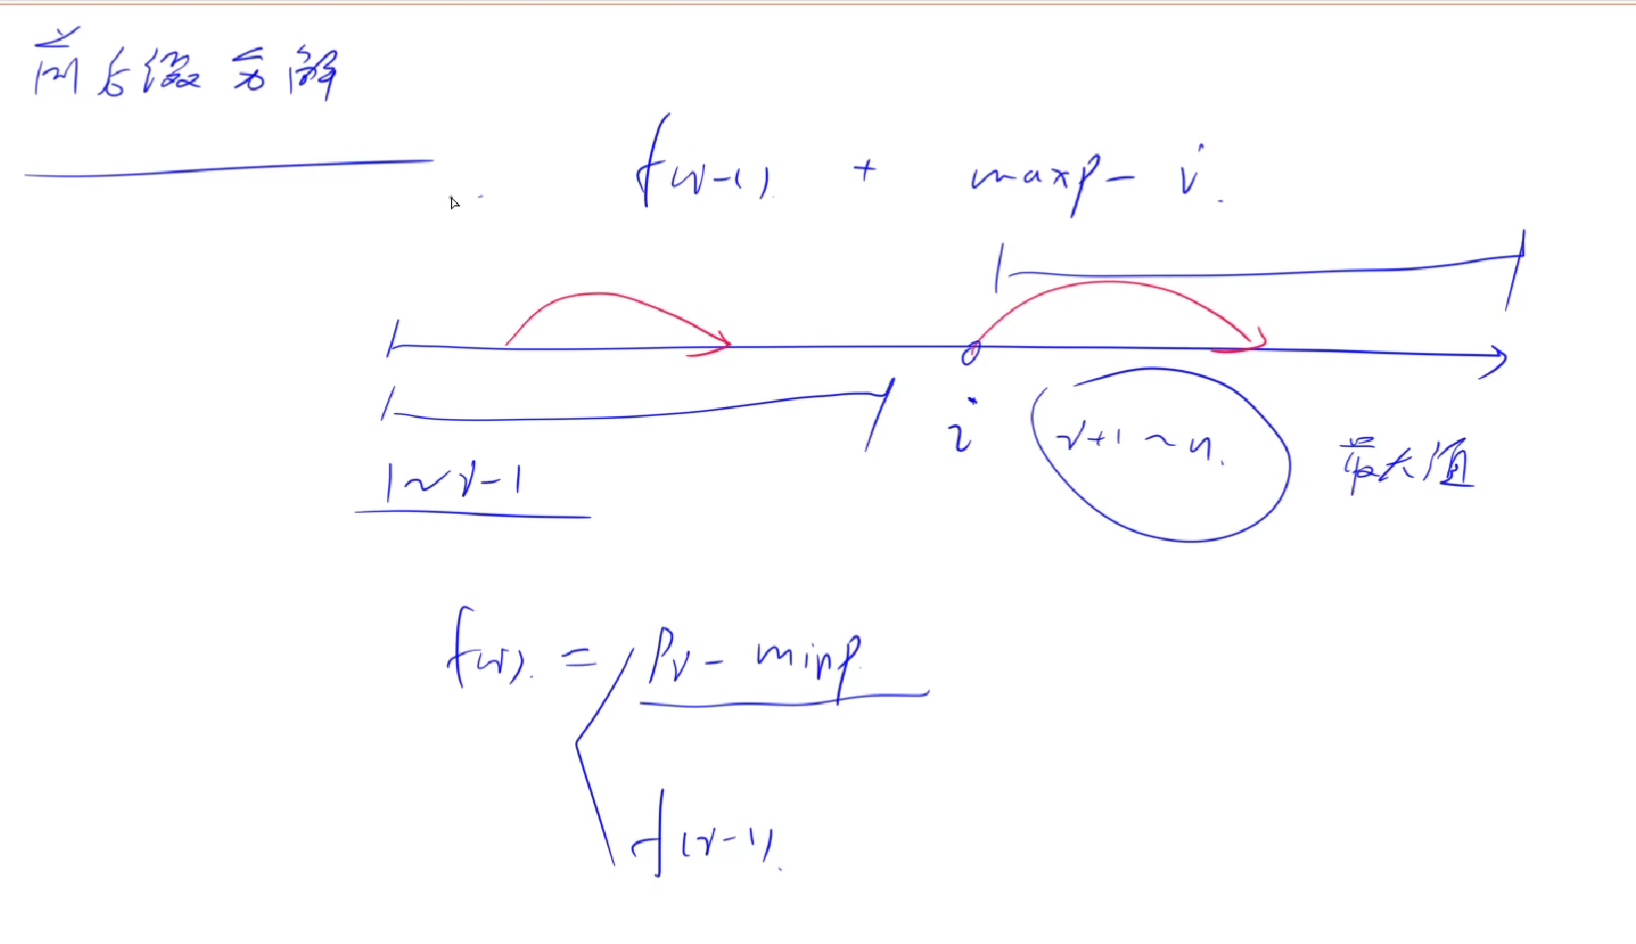 前后缀分解
f(i-1) + maxp - i
i
i+1 ~ n
最大值
1 ~ i-1
f(i) = Pi - minp
f(i-1)